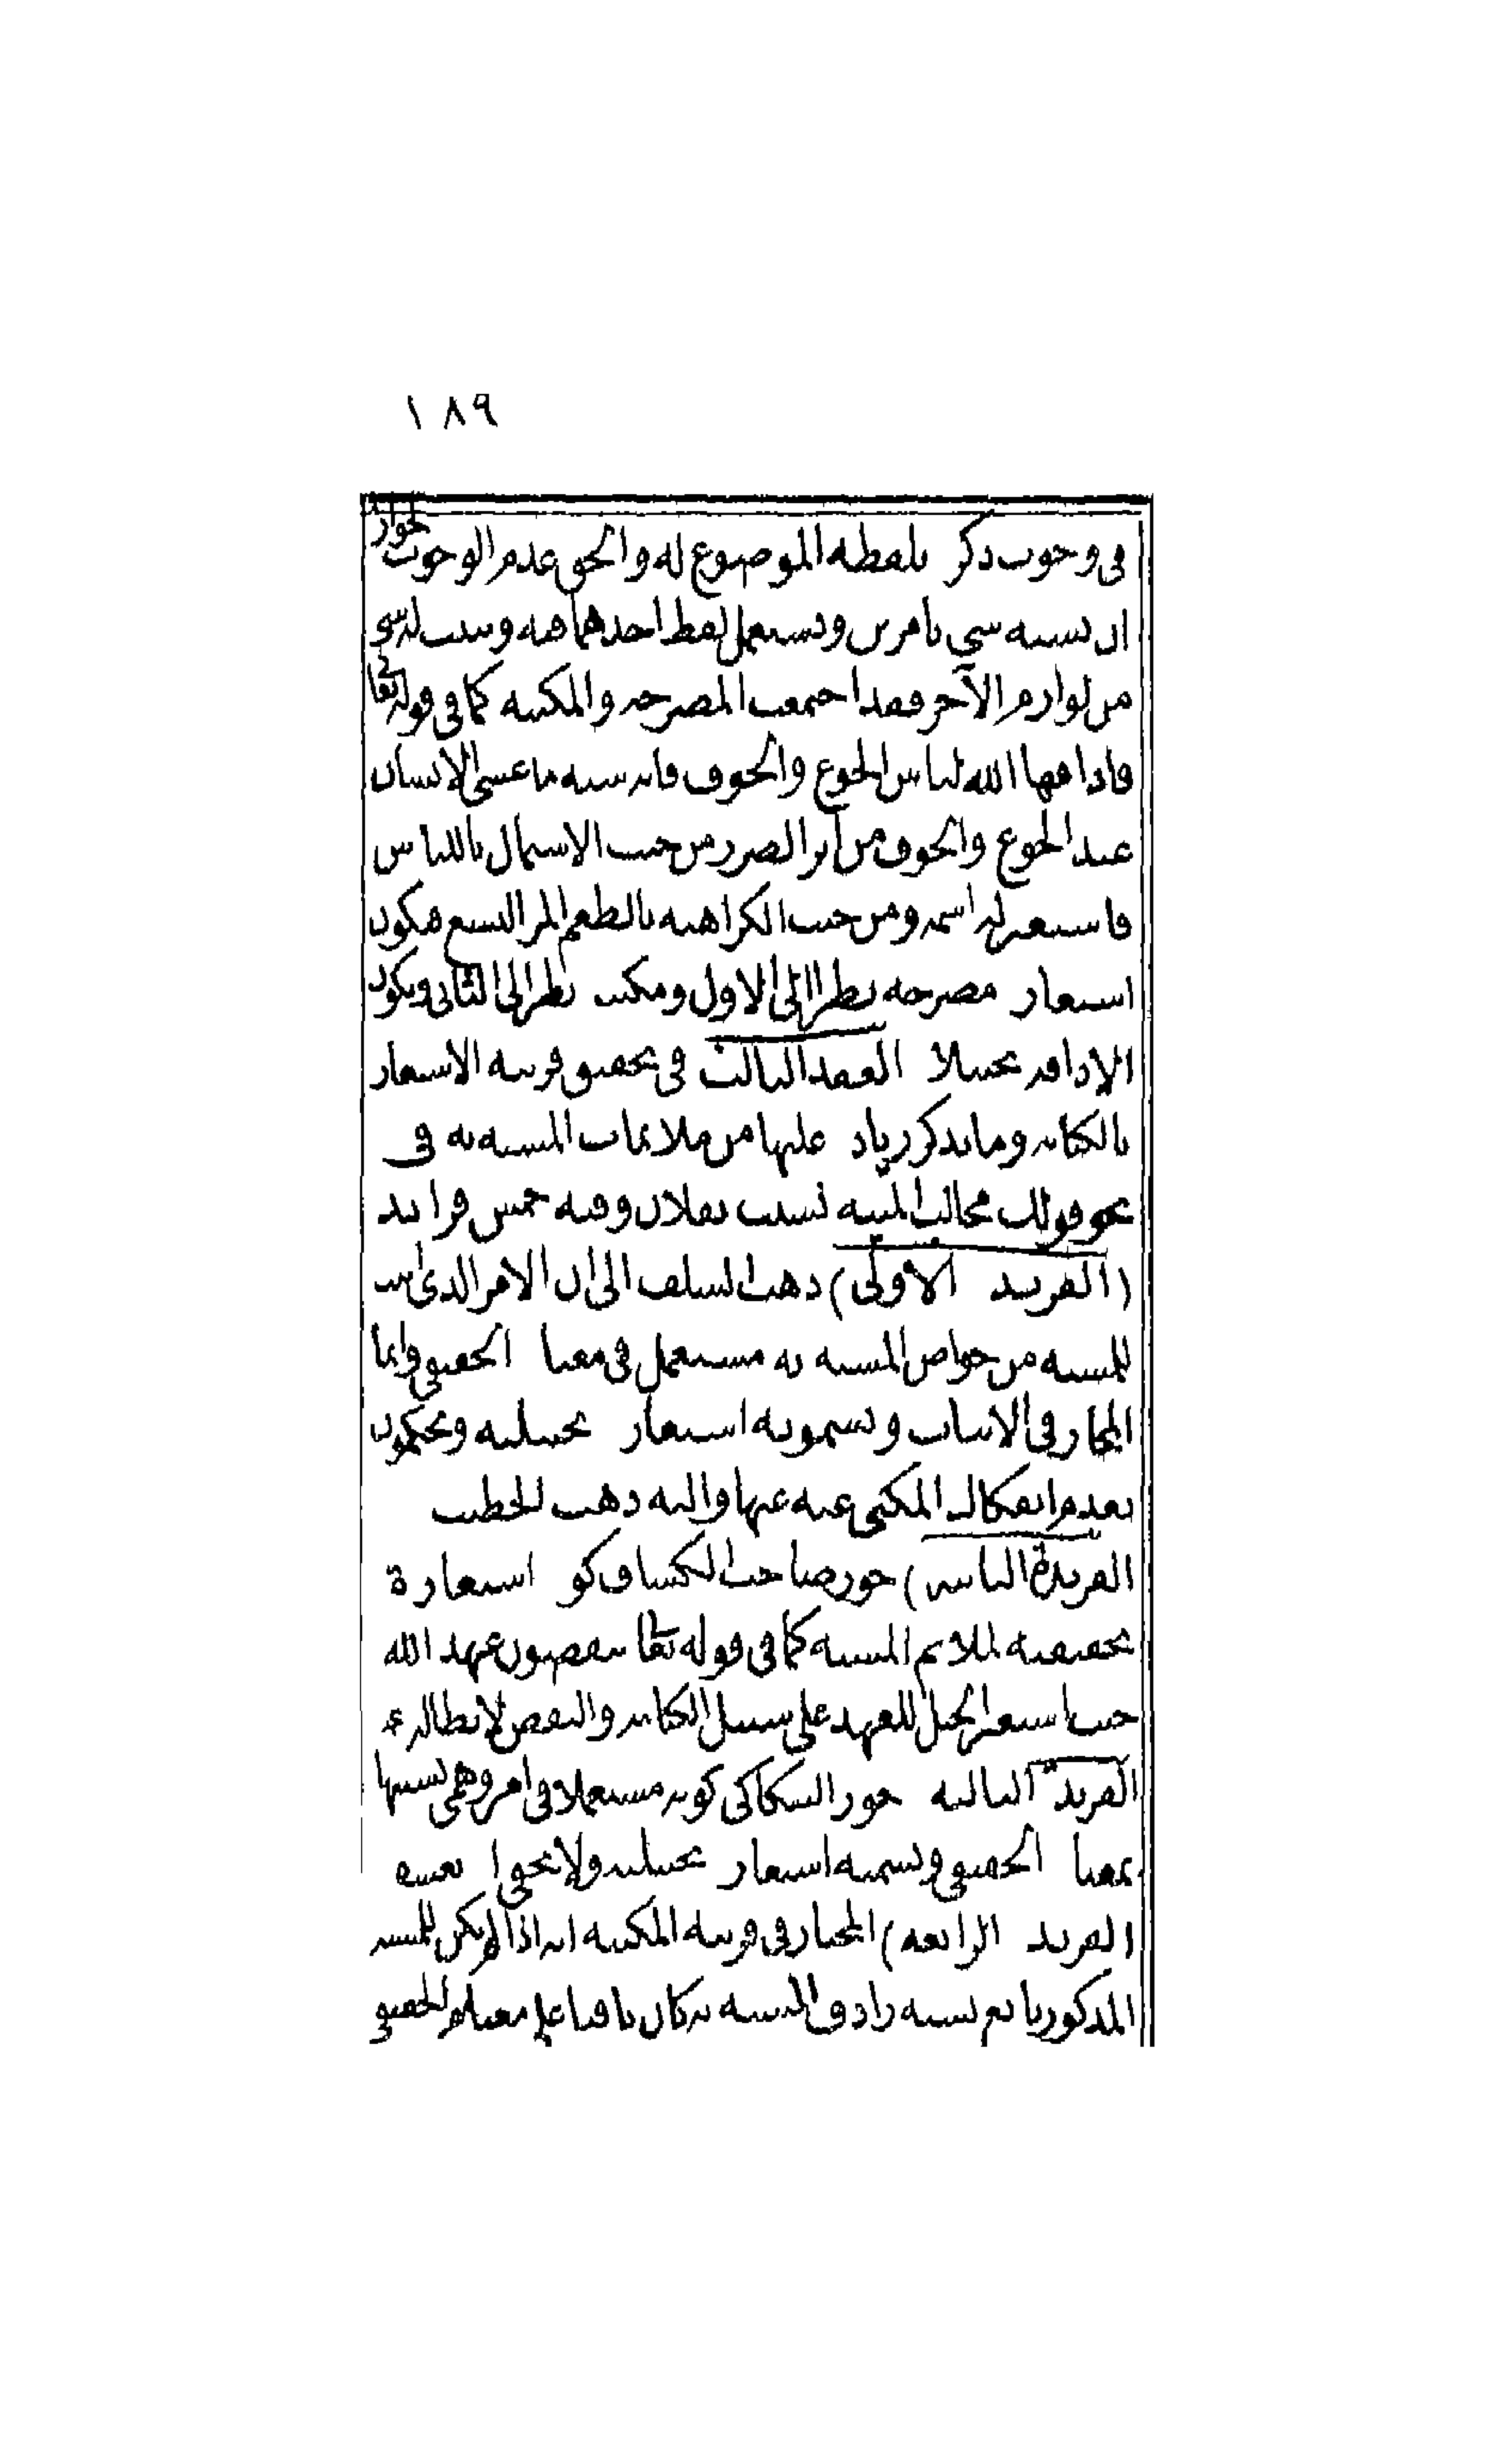 ١٨٩
في وجوب ذكره بلفظه الموضوع له والحق عدم الوجوب لجواز
ان يشبه شيء بامرين ويستعمل لفظ احدهما فيه ويثبت له شيء
من لوازم الآخر فقد اجتمعت المصرحة والمكنية كما في قوله تعا
فاذاقها الله لباس الجوع والخوف فانه شبه ما غشى الانسان
عند الجوع والخوف من اثر الضرر من حيث الاشتمال باللباس
فاستعير له اسمه ومن حيث الكراهية بالطعم المر البشع فيكون
استعارة مصرحة نظرا الى الاول ومكنية نظرا الى الثاني ويكون
الاذاقة تخييلا العقد الثالث في تحقيق قرينة الاستعارة
بالكناية وما يذكر زيادة عليها من ملايمات المشبه به في
نحو قولك مخالب المنية نشبت بفلان وفيه خمس فرائد
(الفريدة الاولى) ذهب السلف الى ان الامر الذي اثبت
للمشبه من خواص المشبه به مستعمل في معناه الحقيقي وانما
المجاز في الاثبات ويسمونه استعارة تخييلية ويحكمون
بعدم انفكاك المكني عنه عنها واليه ذهب الخطيب
الفريدة الثانية) جوز صاحب الكشاف كونه استعارة
تحقيقية لملايم المشبه كما في قوله تعا ينقضون عهد الله
حيث استعير الحبل للعهد على سبيل الكناية والنقض لابطاله
الفريدة الثالثة جوز السكاكي كونه مستعملا في امر وهمي تشبيها
بمعناه الحقيقي ويسميه استعارة تخييلية ولا يخفى انه تعسف
(الفريدة الرابعة) المختار في قرينة المكنية انه اذا لم يكن للمشبه
المذكور تابع يشبه رادف المشبه به كان باقيا على معناه الحقيقي